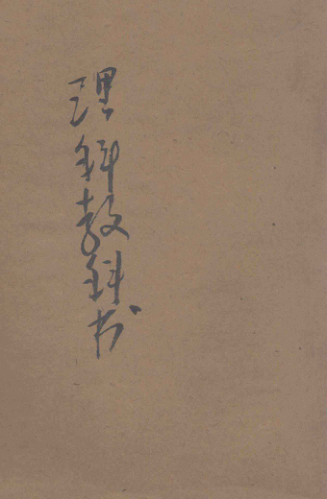 理科教科书